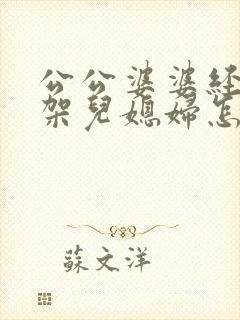 公公婆婆經
架兒媳婦怎
蘇文洋